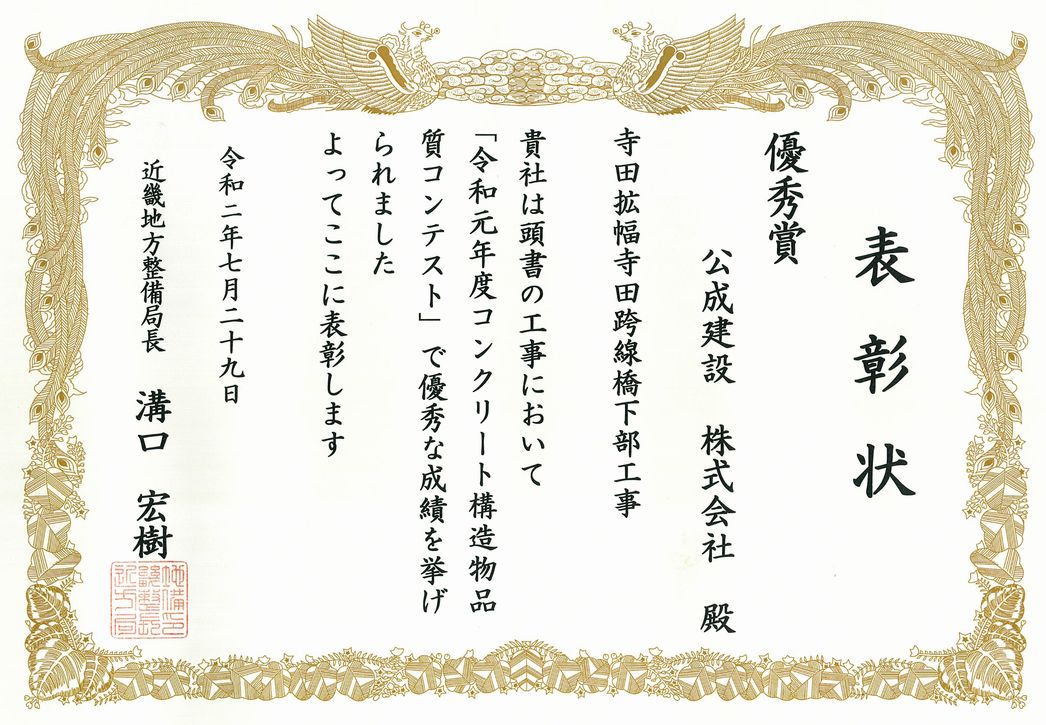 表彰状
優秀賞
公成建設 株式会社 殿
寺田拡幅寺田跨線橋下部工事
貴社は頭書の工事において
「令和元年度コンクリート構造物品
質コンテスト」で優秀な成績を挙げ
られました
よってここに表彰します
令和二年七月二十九日
近畿地方整備局長 溝口 宏樹